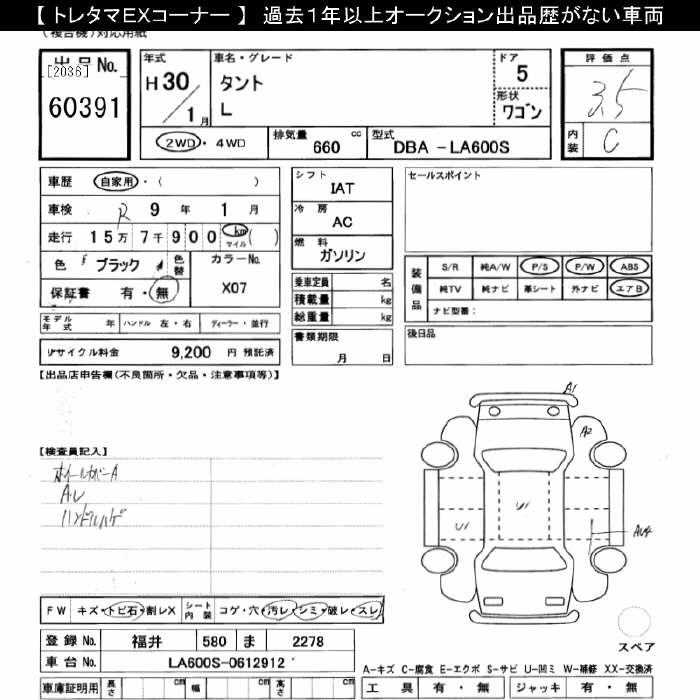 【 トレタマEXコーナー 】 過去１年以上オークション出品歴がない車両
(複合機)対応用紙
出品No.
[2036]
60391
年式
H 30 / 1月
車名・グレード
タント
L
ドア
5
形状
ワゴン
評価点
3.5
内装
C
2WD・4WD
排気量 660 cc
型式 DBA －LA600S
車歴 自家用・（ ）
車検 R 9 年 1 月
走行 15万 7千 900 km マイル ( )
色 ブラック 色替
カラーNo. X07
保証書 有・無
モデル年式 年 ハンドル 左・右 ディーラー・並行
リサイクル料金 9,200 円 預託済
シフト
IAT
冷房
AC
燃料
ガソリン
乗車定員 名
積載量 kg
総重量 kg
書類期限
月 日
セールスポイント
装備品
S/R 純A/W P/S P/W ABS
純TV 純ナビ 革シート 外ナビ エアB
ナビ型番：
後日品
【出品店申告欄(不良箇所・欠品・注意事項等)】
【検査員記入】
ホイールカバーA
A.U
ハンドルハゲ
A1
A2
U1
U1
AU4
スペア
FW キズ・トビ石・割レX
シート内装 コゲ・穴・汚レ・シミ・破レ・スレ
登録No. 福井 580 ま 2278
車台No. LA600S-0612912
車庫証明用 長さ cm 幅 cm 高さ cm
A－キズ C－腐食 E－エクボ S－サビ U－凹ミ W－補修 XX－交換済
工具 有・無 ジャッキ 有・無